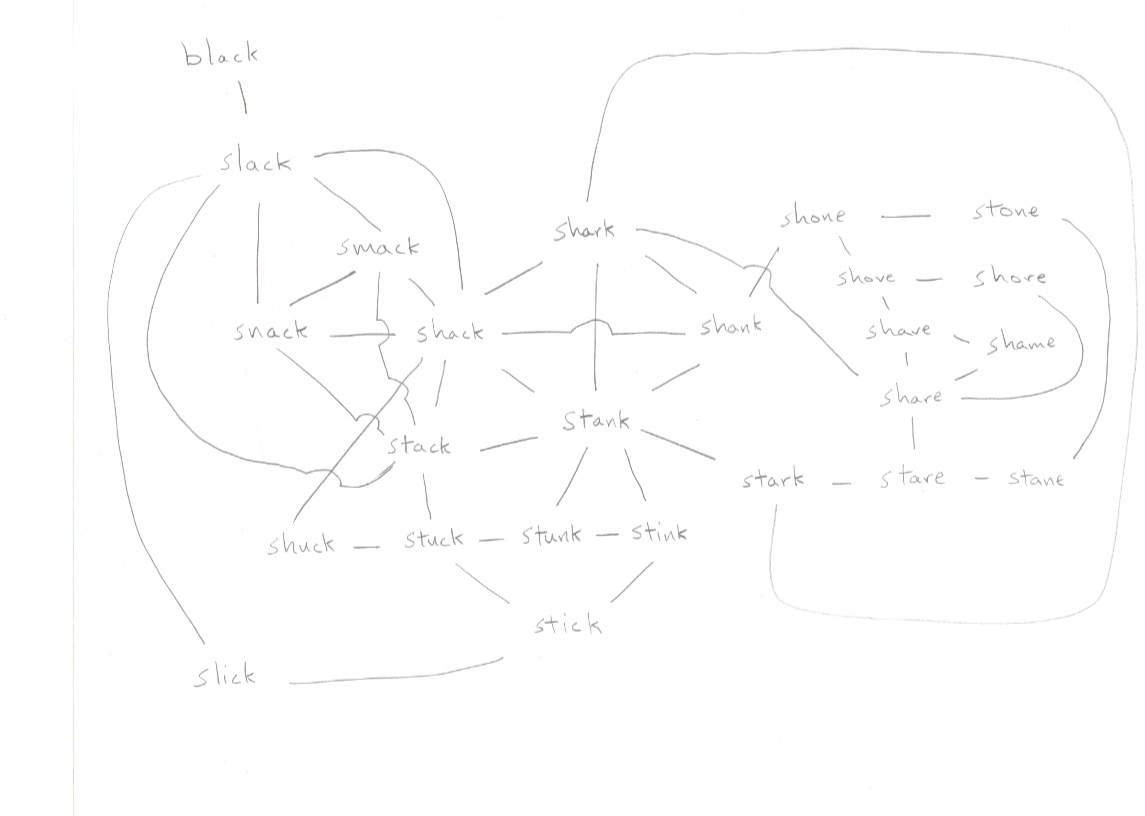 black
slack
smack
shark
shone
stone
shove
shore
snack
shack
shank
shave
shame
share
stack
stank
stark
stare
stane
shuck
stuck
stunk
stink
stick
slick